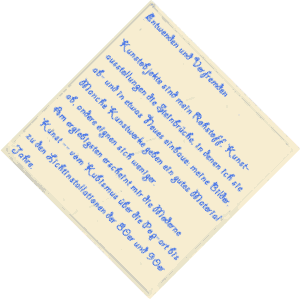 Entwenden und Verfremden
Kunstobjekte sind mein Rohstoff, Kunst-
ausstellungen die Steinbrüche, in denen ich sie
ab- und in etwas Neues einbaue: meine Bilder.
Manche Kunstwerke geben ein gutes Material
ab, andere eignen sich weniger.
Am ergiebigsten erscheint mir die Moderne
Kunst -- vom Kubismus über die Pop-art bis
zu den Lichtinstallationen der 80er und 90er
Jahre.